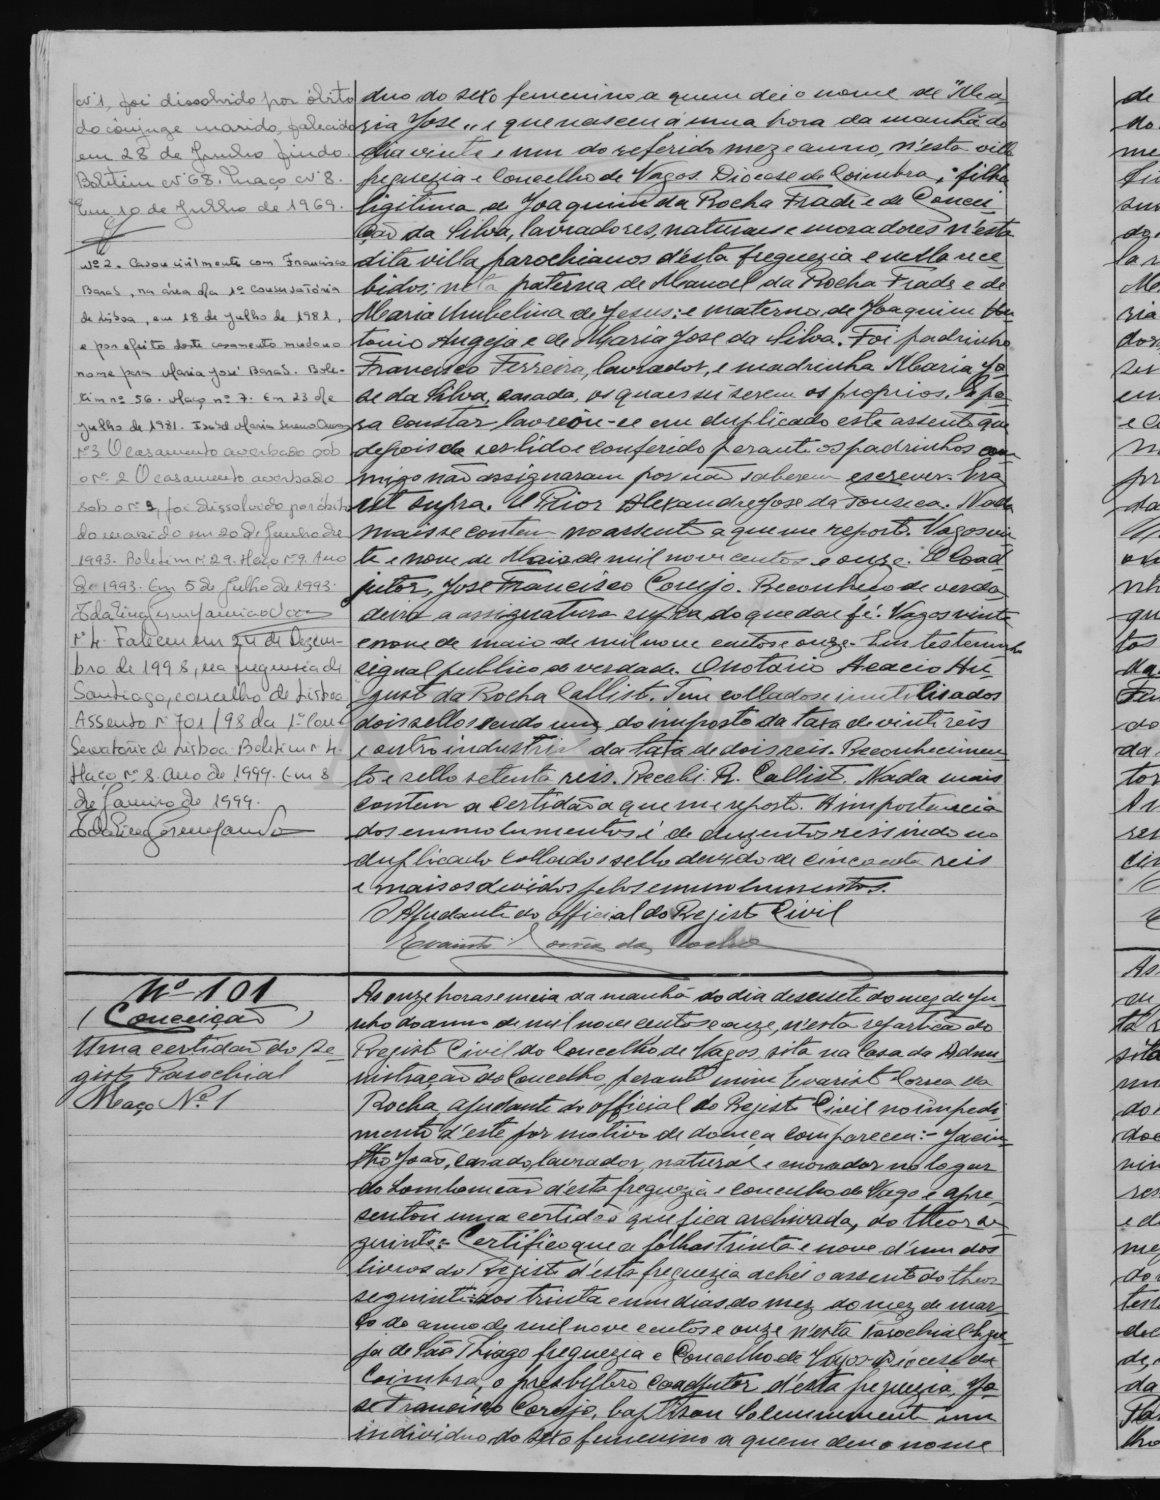 nº 1, foi dissolvido por óbito
do cônjuge marido, falecido
em 28 de Junho findo.
Boletim nº 68. Maço nº 8.
Em 10 de Julho de 1969.
Nº 2. Casou civilmente com Francisco
Baraó, na área da 1ª Conservatória
de Lisboa, em 18 de Julho de 1981,
e por efeito deste casamento mudou o
nome para Maria José Baraó. Bole-
tim nº 56. Maço nº 7. Em 23 de
Julho de 1981.
Nº 3 O casamento averbado sob
o nº 2 O casamento averbado
sob o nº 2, foi dissolvido por óbito
do marido em 20 de Junho de
1993. Boletim nº 29. Maço nº 9. Ano
de 1993. Em 5 de Julho de 1993.
Nº 4. Faleceu em 24 de Dezem-
bro de 1998, na freguesia de
Santiago, concelho de Lisboa
Assento nº 701/98 da 1ª Con-
servatória de Lisboa. Boletim nº 4.
Maço nº 8. Ano de 1999. Em 8
de Janeiro de 1999.
duo do sexo femenino a quem dei o nome de "Ma-
ria José" e que nasceu á uma hora da manhã do
dia vinte e um do referido mez e anno, n'esta villa
freguezia e Concelho de Vagos Diocese de Coimbra, filha
ligitima de Joaquim da Rocha Frade e de Concei-
ção da Silva, lavradores, naturaes e moradores n'esta
dita villa, parochianos d'esta freguezia e nella rece-
bidos; neta paterna de Manoel da Rocha Frade e de
Maria Umbelina de Jesus; e materna de Joaquim An-
tonio Angeja e de Maria José da Silva. Foi padrinho
Francisco Ferreira, lavrador, e madrinha Maria Jo-
sé da Silva, casada, os quaes sei serem os proprios. E pa-
ra constar lavrou-se em duplicado este assento que
depois de ser lido e conferido perante os padrinhos com-
migo não assignaram por não saberem escrever. Era
ut supra. O Prior Alexandre José da Fonseca. Nada
mais se contem no assento a que me reporto. Vagos vin-
te e nove de Maio de mil nove centos e onze. O Coad-
jutor, José Francisco Corujo. Reconheço de verda-
deira a assignatura supra do que dou fé. Vagos vinte
e nove de maio de mil nove centos e onze. Em testemunho
signal publico de verdade. O notario Acacio Au-
gusto da Rocha Callisto. Tem collados e inutilisados
dois sellos sendo um do imposto da taxa de vinte reis
e outro industrial da taxa de dois reis. Reconhecimen-
to e sello setenta reis. Recebi. R. Callisto. Nada mais
contem a certidão a que me reporto. A importancia
dos emmolumentos é de duzentos reis indo no
duplicado collado o sello devido de cincoenta reis
e mais os devidos pelos emmolumentos.
O Ajudante do official do Registo Civil
Evaristo Corrêa da Rocha
Nº 101
(Conceição)
Uma certidão do Re-
gisto Parochial
Maço Nº 1
As onze horas e meia da manhã do dia desasete do mez de Ju-
nho do anno de mil nove centos e onze, n'esta repartição do
Registo Civil do Concelho de Vagos, sita na Casa da Admi-
nistração do Concelho, perante mim Evaristo Corrêa da
Rocha, ajudante do official do Registo Civil no impedi-
mento d'este por motivo de doença compareceu:- Jacin-
tho João, casado, lavrador, natural e morador no logar
do Lombomeão d'esta freguezia e concelho de Vagos e apre-
sentou uma certidão que fica archivada, do theor se-
guinte:- Certifico que a folhas trinta e nove d'um dos
livros do Registo d'esta freguezia achei o assento do theor
seguinte: Aos trinta e um dias do mez do mez de mar-
ço do anno de mil nove centos e onze n'esta Parochial Egre-
ja de São Thiago freguezia e Concelho de Vagos Diocese de
Coimbra, o presbytero Coadjutor d'esta freguezia, Jo-
sé Francisco Corujo, baptisou solemnemente um
individuo do sexo femenino a quem deu o nome